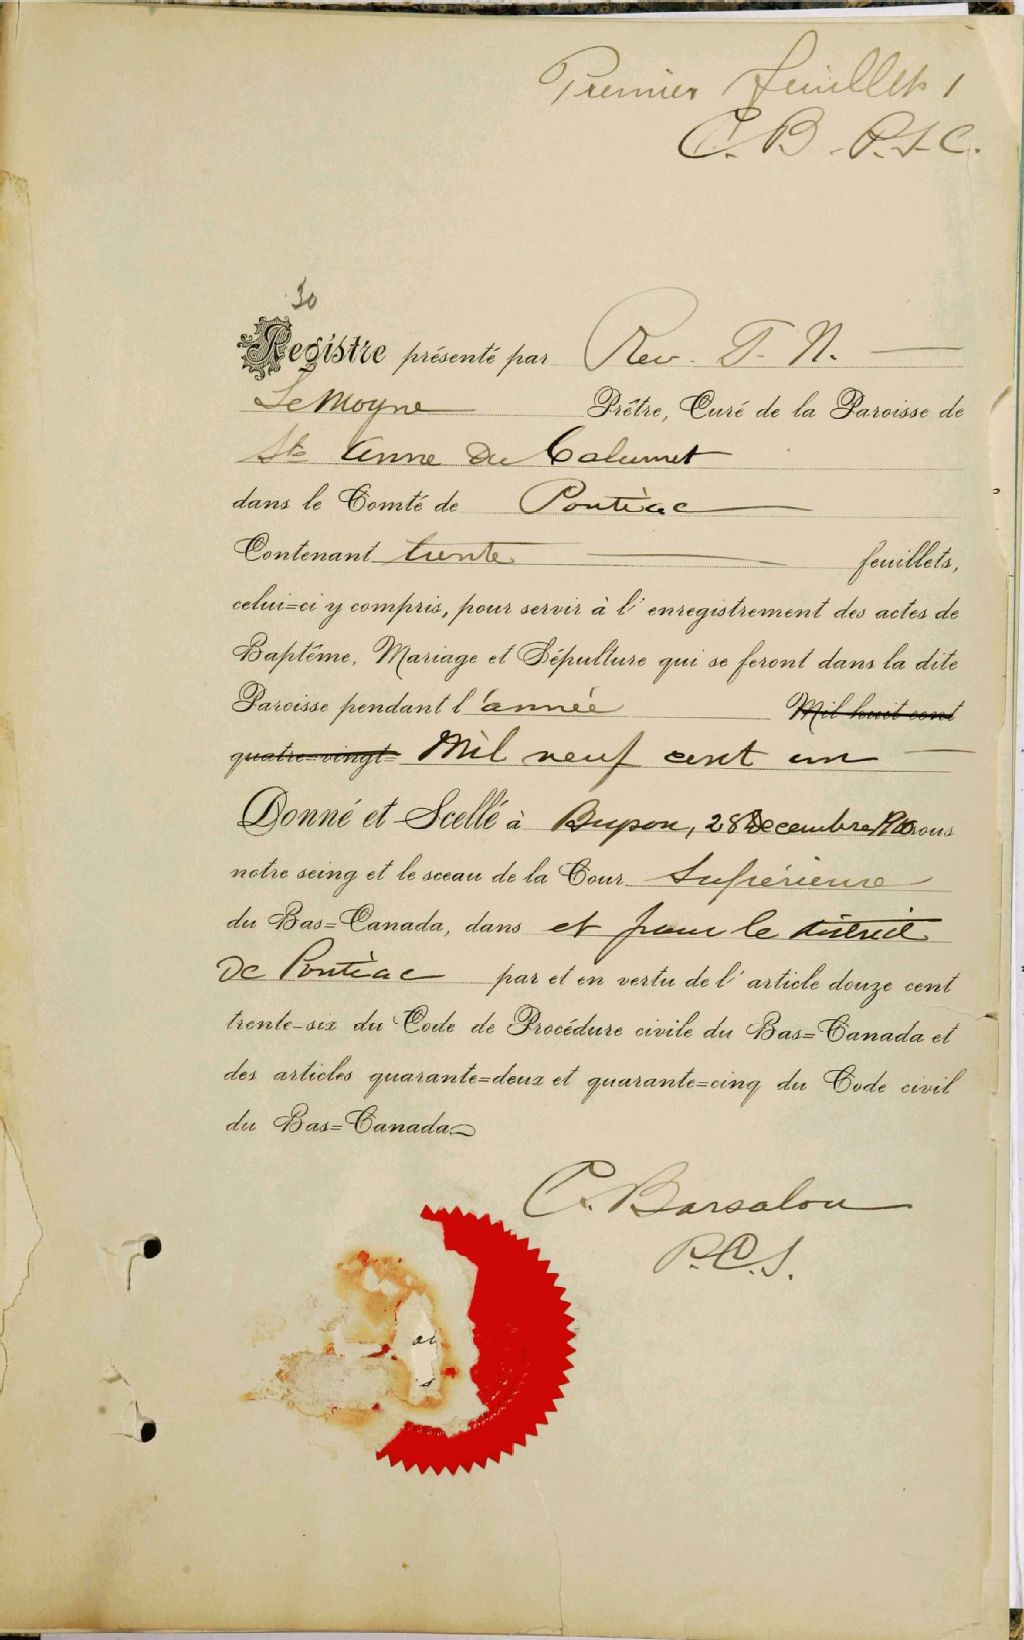 Premier feuillet 1
C. B. P.S.C.
30
Registre présenté par Rev. T. N.
Le Moyne Prêtre, Curé de la Paroisse de
Ste Anne Du Calumet
dans le Comté de Pontiac
Contenant trente feuillets,
celui=ci y compris, pour servir à l'enregistrement des actes de
Baptême, Mariage et Sépulture qui se feront dans la dite
Paroisse pendant l'année Mil huit cent
quatre=vingt= Mil neuf cent un
Donné et Scellé à Bryson, 28 Decembre sous
notre seing et le sceau de la Cour Supérieure
du Bas=Canada, dans et pour le district
De Pontiac par et en vertu de l'article douze cent
trente-six du Code de Procédure civile du Bas=Canada et
des articles quarante=deux et quarante=cinq du Code civil
du Bas=Canada
C. Barsalou
P.C.S.